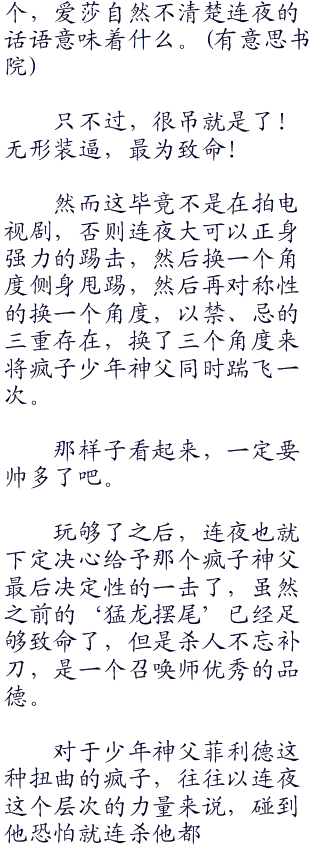 个，爱莎自然不清楚连夜的
话语意味着什么。(有意思书
院)
只不过，很吊就是了！
无形装逼，最为致命！
然而这毕竟不是在拍电
视剧，否则连夜大可以正身
强力的踢击，然后换一个角
度侧身甩踢，然后再对称性
的换一个角度，以禁、忌的
三重存在，换了三个角度来
将疯子少年神父同时踹飞一
次。
那样子看起来，一定要
帅多了吧。
玩够了之后，连夜也就
下定决心给予那个疯子神父
最后决定性的一击了，虽然
之前的‘猛龙摆尾’已经足
够致命了，但是杀人不忘补
刀，是一个召唤师优秀的品
德。
对于少年神父菲利德这
种扭曲的疯子，往往以连夜
这个层次的力量来说，碰到
他恐怕就连杀他都